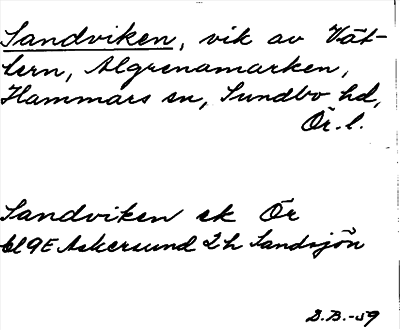 Sandviken, vik av Vät-
tern, Algrenamarken,
Hammars sn, Sundbo hd,
Ör. l.
Sandviken ek Ör
bl 9E Askersund 2h Sandsjön
D.B.-59